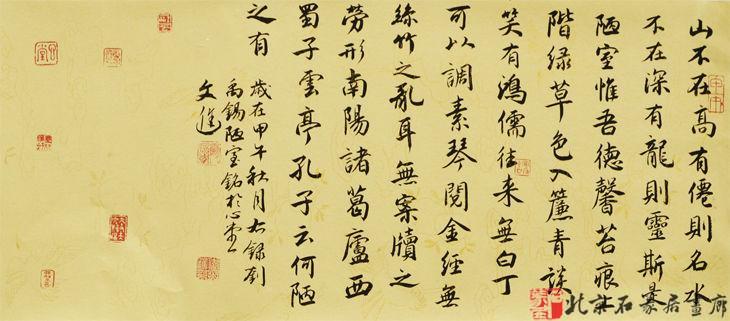 山不在高有僊則名水
不在深有龍則靈斯是
陋室惟吾德馨苔痕上
階緑草色入簾青談
笑有鴻儒往来無白丁
可以調素琴閱金經無
絲竹之亂耳無案牘之
勞形南陽諸葛廬西
蜀子雲亭孔子云何陋
之有
歲在甲午秋月右錄劉
禹錫陋室銘於心
文進
北京石居畫廊